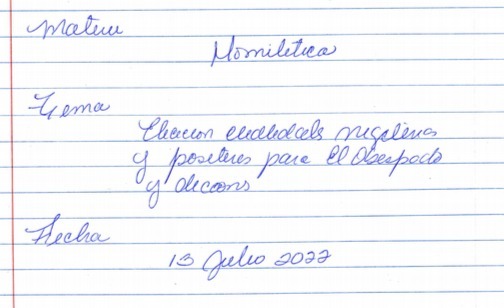 Materia
Homiletica
Tema
Eleccion cualidades negativas
y positivas para El Obispado
y diaconos
Fecha
13 Julio 2022